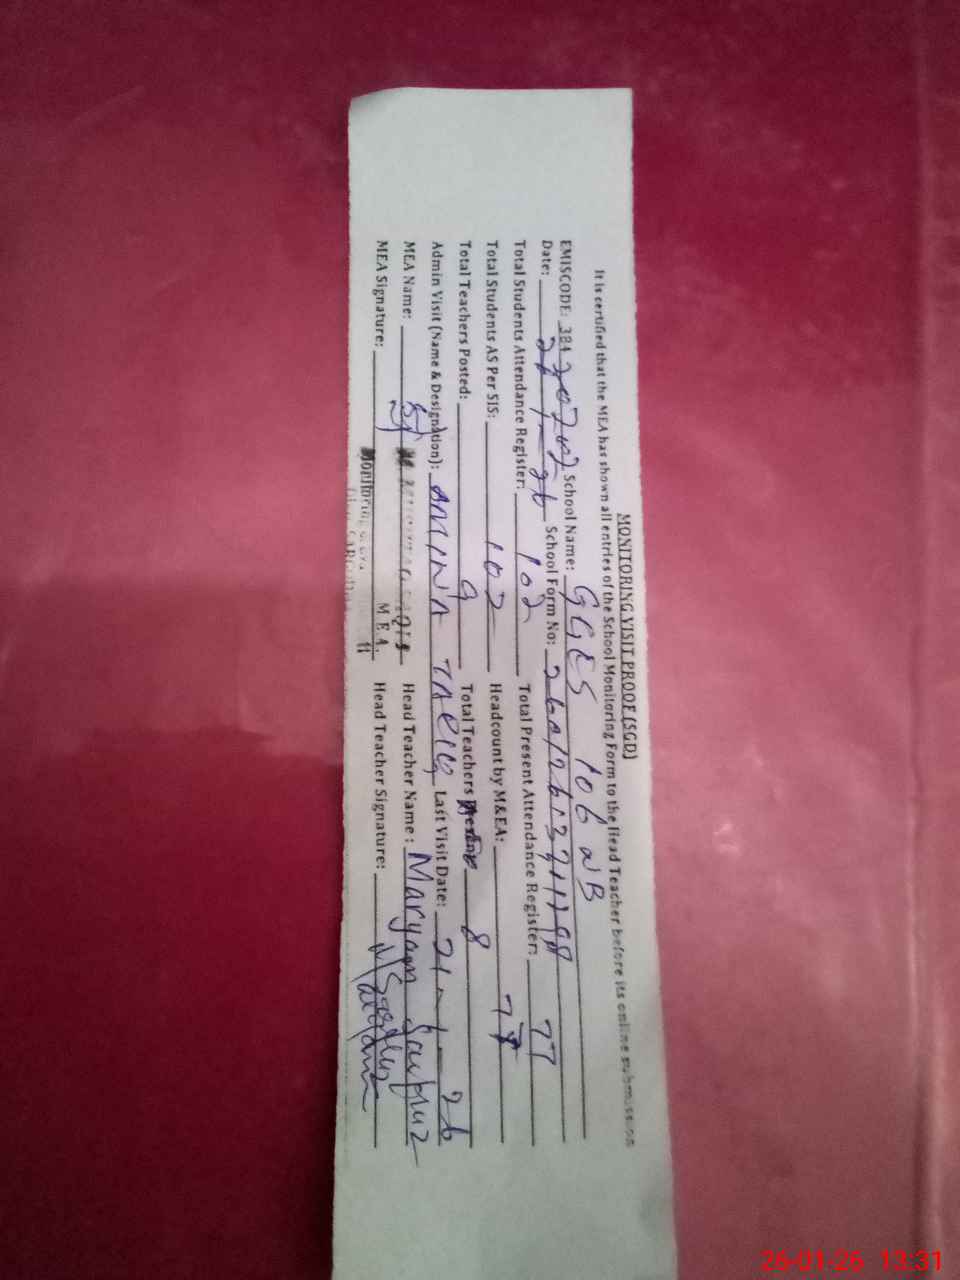 MONITORING VISIT PROOF (SGD)
It is certified that the MEA has shown all entries of the School Monitoring Form to the Head Teacher before its online submission
EMISCODE: 384 20702 School Name: GGES 106 NB
Date: 26-1-26 School Form No:
Total Students Attendance Register: 102 Total Present Attendance Register: 77
Total Students AS Per SIS: 102 Headcount by M&EA: 77
Total Teachers Posted: 9 Total Teachers Present 8
Admin Visit (Name & Designation): AMINA TARIQ Last Visit Date: 21-1-26
MEA Name: Head Teacher Name: Maryam Sarfraz
MEA Signature: M.E.A. Head Teacher Signature: Maryam Sarfraz
Monitoring
26-01-26 13:31